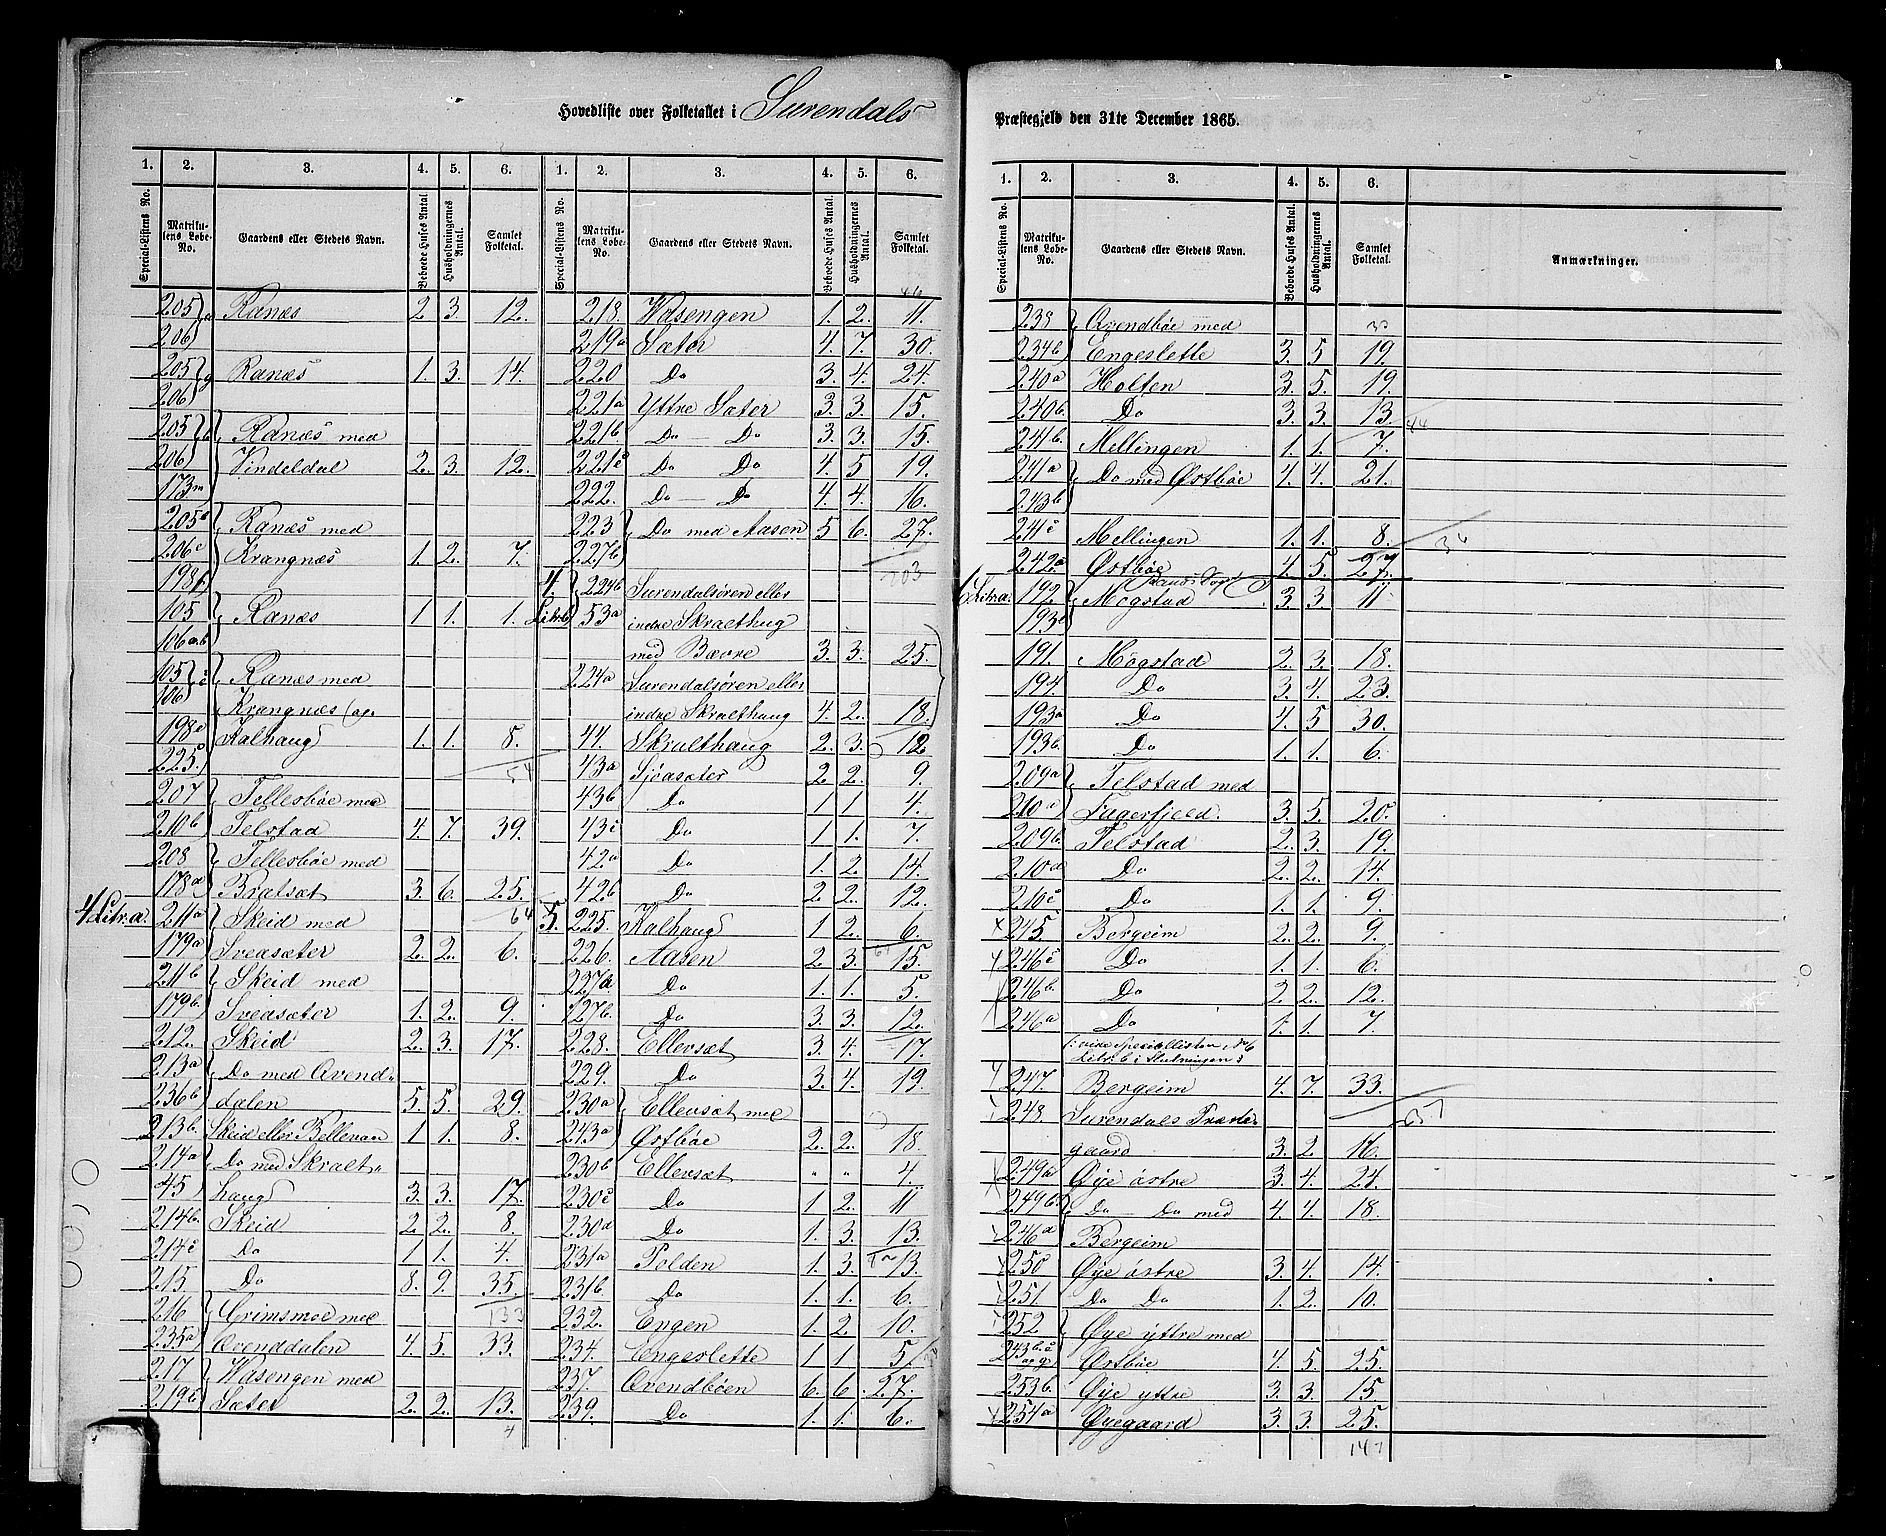 Hovedliste over Folketallet i Surendals Præstegjeld den 31te December 1865.
1. 2. 3. 4. 5. 6. 1. 2. 3. 4. 5. 6.
Special-Listens No. Matrikulens Løbe-No. Gaardens eller Stedets Navn. Beboede Huses Antal. Husholdningernes Antal. Samlet Folketal. Special-Listens No. Matrikulens Løbe-No. Gaardens eller Stedets Navn. Beboede Huses Antal. Husholdningernes Antal. Samlet Folketal.
205 Ranæs 2 3. 12.
206
205 g Ranæs 1. 3. 14.
206
205 Ranæs med
206 Vindeldal 2. 3. 12.
173m
205 Ranæs med
206 Krangnæs 1. 2. 7.
198f
105 Ranæs 1 1. 1.
106 a.b
105 Ranæs med
106 Krangnæs (og
198 Kalhaug 1. 1. 8.
225
54
207 Tellesbøe med
210b Telstad 4. 7. 39.
208 Tellesbøe med
178d Bratsæt 3. 6. 25.
64
4 Litr.a. 211a Skeid med
179a Sveasæter 2. 2. 6.
211b Skeid med
179b Sveasæter 1. 2. 9.
212. Skeid 2. 3. 17.
213a Do med Qvend-
236b dalen 5. 5. 29.
213b. Skeid eller Bellevan 1 1. 8.
214a Do med Skralt-
45 haug 3. 3. 17.
214b. Skeid 2. 2. 8.
214c Do 1 1. 4.
215 Do 8. 9. 35.
133
216 Grimsmoe med
235a Qvenddalen 4. 5. 33.
217 Wasengen med
219b Sæter 2. 2. 13.
46
218. Wasengen 1. 2. 11.
219a Sæter 4. 7. 30.
220 Do 3. 4. 24.
221a Yttre Sæter 3. 3. 15.
221b Do — Do 3. 3. 15.
221c Do Do 4. 5 19.
222. Do — Do 4. 4. 16.
223 Do med Aasen 5 6. 27.
227b
203
4. Litr.b 224b Surendalsøren eller
53a indre Skralthug
med Bævre 3. 3. 25.
224a Surendalsøren eller
indre Skralthaug 4. 2. 18.
44. Skralthaug 2. 3. 12
43a Sjøasæter 2 2. 9.
43b Do 1 1 4.
43c Do 1 1. 7.
42a Do 1. 2 14.
42b Do 2 2. 12.
5. 225. Kalhaug 1 2. 6.
226. Aasen 2 3. 15.
227a. Do 1. 1. 5.
127b. Do 3. 3. 12.
228. Ellevsæt 3. 4. 17.
229. Do 3. 4. 19.
230a Ellevsæt med
243a Østbøe 2. 2. 18.
230b Ellevsæt " " 4.
230c Do 1 2. 11
230d Do 1. 3. 13.
231a Polden 1. 3. 13.
231b. Do 1. 1. 6.
232. Engen 1. 2 10.
234. Engeslette 1 1 5
237. Qvendbøen 6. 6. 27.
239. Do 1. 1. 6.
1. 2. 3. 4. 5. 6.
Special-Listens No. Matrikulens Løbe-No. Gaardens eller Stedets Navn. Beboede Huses Antal. Husholdningernes Antal. Samlet Folketal. Anmærkninger.
238 Qvendbøe med
234b Engeslette 3. 5 19.
240a Holten 3. 5. 19.
240b. Do 3. 3. 13.
44
241b. Mellingen 1. 1. 7.
241a Do med Østbøe 4. 4. 21.
243b
241c Mellingen 1. 1. 8.
34
242a Østbøe 4. 5. 27.
Ranæs Sogn
6 Litr.a. 192 Møgstad 3. 3 11
193c
191. Møgstad 2. 3. 18.
194. Do 3. 4. 23.
193a Do 4. 5 30.
193b. Do 1. 1. 6.
209a Telstad med
210 Fugerfjeld. 3. 5. 20.
209b. Telstad 2. 3. 19.
210d Do 2. 2. 14.
210c Do 1. 1. 9.
245 Bergeim 2. 2. 9.
246c Do 1. 1. 6.
246b. Do 2 2. 12.
246a Do 1. 1. 7.
(: vide speciallisten No 6
Litr. b i Slutningen :)
247. Bergeim 4. 7. 33.
248. Surendals Præste-
gaard 3. 2 16.
249a Øye østre 3. 4. 21.
249b. Do — Do med 4. 4. 18.
246d Bergeim
250 Øye østre 3. 4. 14.
251. Do Do 1. 2. 10.
252. Øye yttre med
243b.c og g Østbøe 4. 5. 25.
253b. Øye yttre 3. 3. 15
254a Øyegaard 3. 3. 25.
147